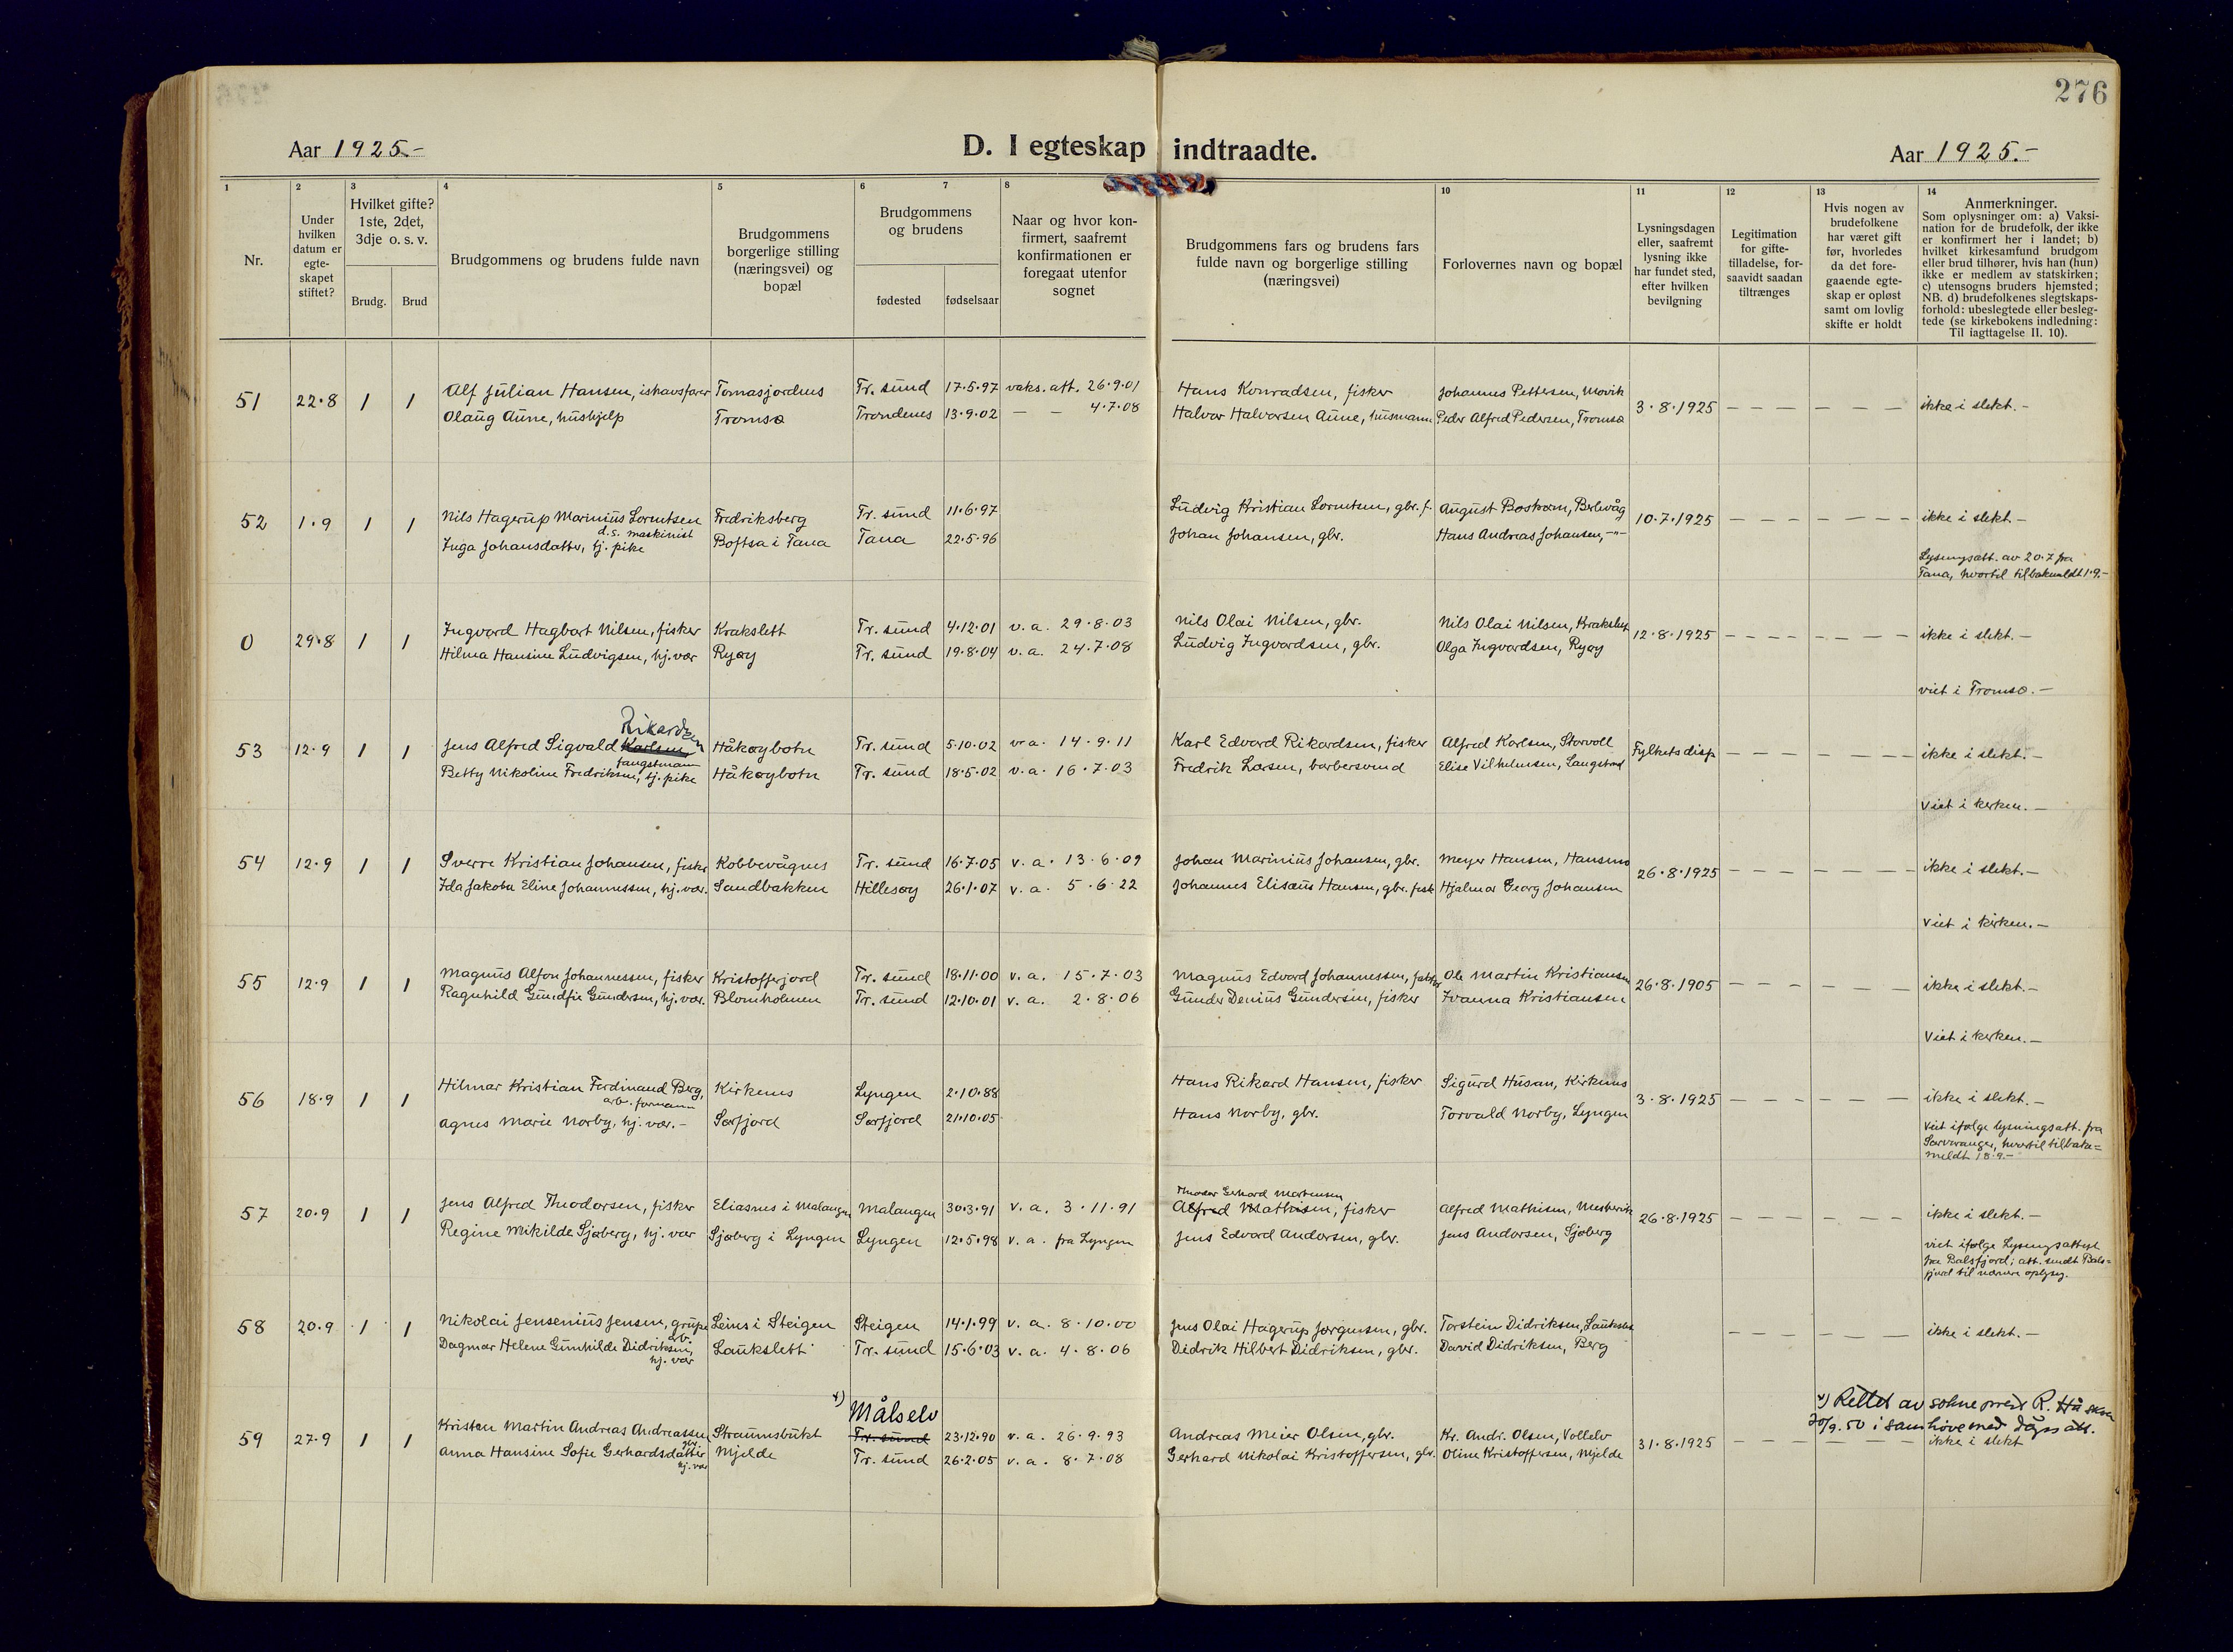 276
Aar 1925.-
D. I egteskap indtraadte.
Aar 1925.-
1 2 3 4 5 6 7 8 10 11 12 13 14
Nr.
Under hvilken datum er egte-skapet stiftet?
Hvilket gifte? 1ste, 2det, 3dje o. s. v.
Brudg. Brud
Brudgommens og brudens fulde navn
Brudgommens borgerlige stilling (næringsvei) og bopæl
Brudgommens og brudens
fødested fødselsaar
Naar og hvor kon-firmert, saafremt konfirmationen er foregaat utenfor sognet
Brudgommens fars og brudens fars fulde navn og borgerlige stilling (næringsvei)
Forlovernes navn og bopæl
Lysningsdagen eller, saafremt lysning ikke har fundet sted, efter hvilken bevilgning
Legitimation for gifte-tilladelse, for-saavidt saadan tiltrænges
Hvis nogen av brudefolkene har været gift før, hvorledes da det fore-gaaende egte-skap er opløst samt om lovlig skifte er holdt
Anmerkninger.
Som oplysninger om: a) Vaksi-
nation for de brudefolk, der ikke
er konfirmert her i landet; b)
hvilket kirkesamfund brudgom
eller brud tilhører, hvis han (hun)
ikke er medlem av statskirken;
c) utensogns bruders hjemsted;
NB. d) brudefolkenes slegtskaps-
forhold: ubeslegtede eller besleg-
tede (se kirkebokens indledning:
Til iagttagelse II. 10).
51 22.8 1 1 Alf Julian Hansen, ishavsfarer Tomasjordnes Tr. sund 17.5.97 vaks. att. 26.9.01 Hans Konradsen, fisker Johannes Pettersen, Movik 3.8.1925 — — — — — — ikke i slekt.-
Olaug Aune, hushjelp Tromsø Trondenes 13.9.02 — — 4.7.08 Halvar Halvorsen Aune, husmann Peder Alfred Pedersen, Tromsø
52 1.9 1 1 Nils Hagerup Marinius Lorentsen Fredriksberg Tr. sund 11.6.97 Ludvig Kristian Lorentsen, gbr. f. August Bostrøm, Berlevåg 10.7.1925 — — — — — — ikke i slekt.-
d.s. maskinist
Inga Johansdatter, tj. pike Boftsa i Tana Tana 22.5.96 Johan Johansen, gbr. Hans Andreas Johansen, -"-
Lysningsatt. av 20.7 fra
Tana, hvortil tilbakemeldt 1.9.-
0 29.8 1 1 Ingvard Hagbart Nilsen, fisker Krakslett Tr. sund 4.12.01 v. a. 29.8.03 Nils Olai Nilsen, gbr. Nils Olai Nilsen, Krakslett 12.8.1925 — — — — — — ikke i slekt.-
Hilma Hansine Ludvigsen, hj. vær Ryøy Tr. sund 19.8.04 v. a. 24.7.08 Ludvig Ingvardsen, gbr. Olga Ingvardsen, Ryøy
viet i Tromsø.-
Rikardsen
53 12.9 1 1 Jens Alfred Sigvald Karlsen, Håkøybotn Tr. sund 5.10.02 v. a. 14.9.11 Karl Edvard Rikardsen, fisker Alfred Karlsen, Storvoll Fylkets disp — — — — — — ikke i slekt.-
fangstmann
Betty Nikoline Fredriksen, tj. pike Håkøybotn Tr. sund 18.5.02 v. a. 16.7.03 Fredrik Larsen, barbersvend Elise Vilhelmsen, Langstrand
Viet i kerken.-
54 12.9 1 1 Sverre Kristian Johansen, fisker Kobbevågnes Tr. sund 16.7.05 v. a. 13.6.09 Johan Marinius Johansen, gbr. Meyer Hansen, Hansnes 26.8.1925 — — — — — — ikke i slekt.-
Ida Jakobe Eline Johannessen, hj. vær. Sandbakken Hillesøy 26.1.07 v. a. 5.6.22 Johannes Elisæus Hansen, gbr. fisk. Hjalmar Georg Johansen
Viet i kirken.-
55 12.9 1 1 Magnus Alfon Johannessen, fisker Kristofferjord Tr. sund 18.11.00 v. a. 15.7.03 Magnus Edvard Johannessen, fisker Ole Martin Kristiansen 26.8.1905 — — — — — — ikke i slekt.-
Ragnhild Gundfie Gundersen, hj. vær. Blomholmen Tr. sund 12.10.01 v. a. 2.8.06 Gunder Denius Gundersen, fisker Ivanna Kristiansen
Viet i kerken.-
56 18.9 1 1 Hilmar Kristian Ferdinand Berg, Kirkenes Lyngen 2.10.88 Hans Rikard Hansen, fisker Sigurd Husan, Kirkenes 3.8.1925 — — — — — — ikke i slekt.-
arb. formann
Agnes Marie Norby, hj. vær.- Sørfjord Sørfjord 21.10.05 Hans Norby, gbr. Torvald Norby, Lyngen
Viet ifølge lysningsatt. fra
Sørvaranger, hvortil tilbake=
meldt 18.9.-
Theodor Gerhard Mortensen
57 20.9 1 1 Jens Alfred Theodorsen, fisker Eliasnes i Malangen Malangen 30.3.91 v. a. 3.11.91 Alfred Mathisen, fisker Alfred Mathisen, Mestervik 26.8.1925 — — — — — — ikke i slekt.-
Regine Mikilde Sjøberg, hj. vær Sjøberg i Lyngen Lyngen 12.5.98 v. a. fra Lyngen Jens Edvard Andersen, gbr. Jens Andersen, Sjøberg
viet ifølge Lysningsattest
fra Balsfjord; att. sendt Bals=
fjord til nærmere oplysn.
58 20.9 1 1 Nikolai Jensenius Jensen, grube Leines i Steigen Steigen 14.1.99 v. a. 8.10.00 Jens Olai Hagerup Jørgensen, gbr. Torstein Didriksen, Laukslett — — — — — — ikke i slekt.-
arb.
Dagmar Helene Gunhilde Didriksen, Laukslett Tr. sund 15.6.03 v. a. 4.8.06 Didrik Hilbert Didriksen, gbr. David Didriksen, Berg
hj. vær
x) Målselv x) Rettet av sokneprest R. Hå
20/9.50 i samhøve med dåpsatt.
59 27.9 1 1 Kristen Martin Andreas Andreassen Straumsbukt Tr. sund 23.12.90 v. a. 26.9.93 Andreas Meier Olsen, gbr. Kr. Andr. Olsen, Vollelv 31.8.1925 — — — — — — ikke i slekt
gbr.
Anna Hansine Sofie Gerhardsdatter Mjelde Tr. sund 26.2.05 v. a. 8.7.08 Gerhard Nikolai Kristoffersen, gbr. Oline Kristoffersen, Mjelde
hj. vær